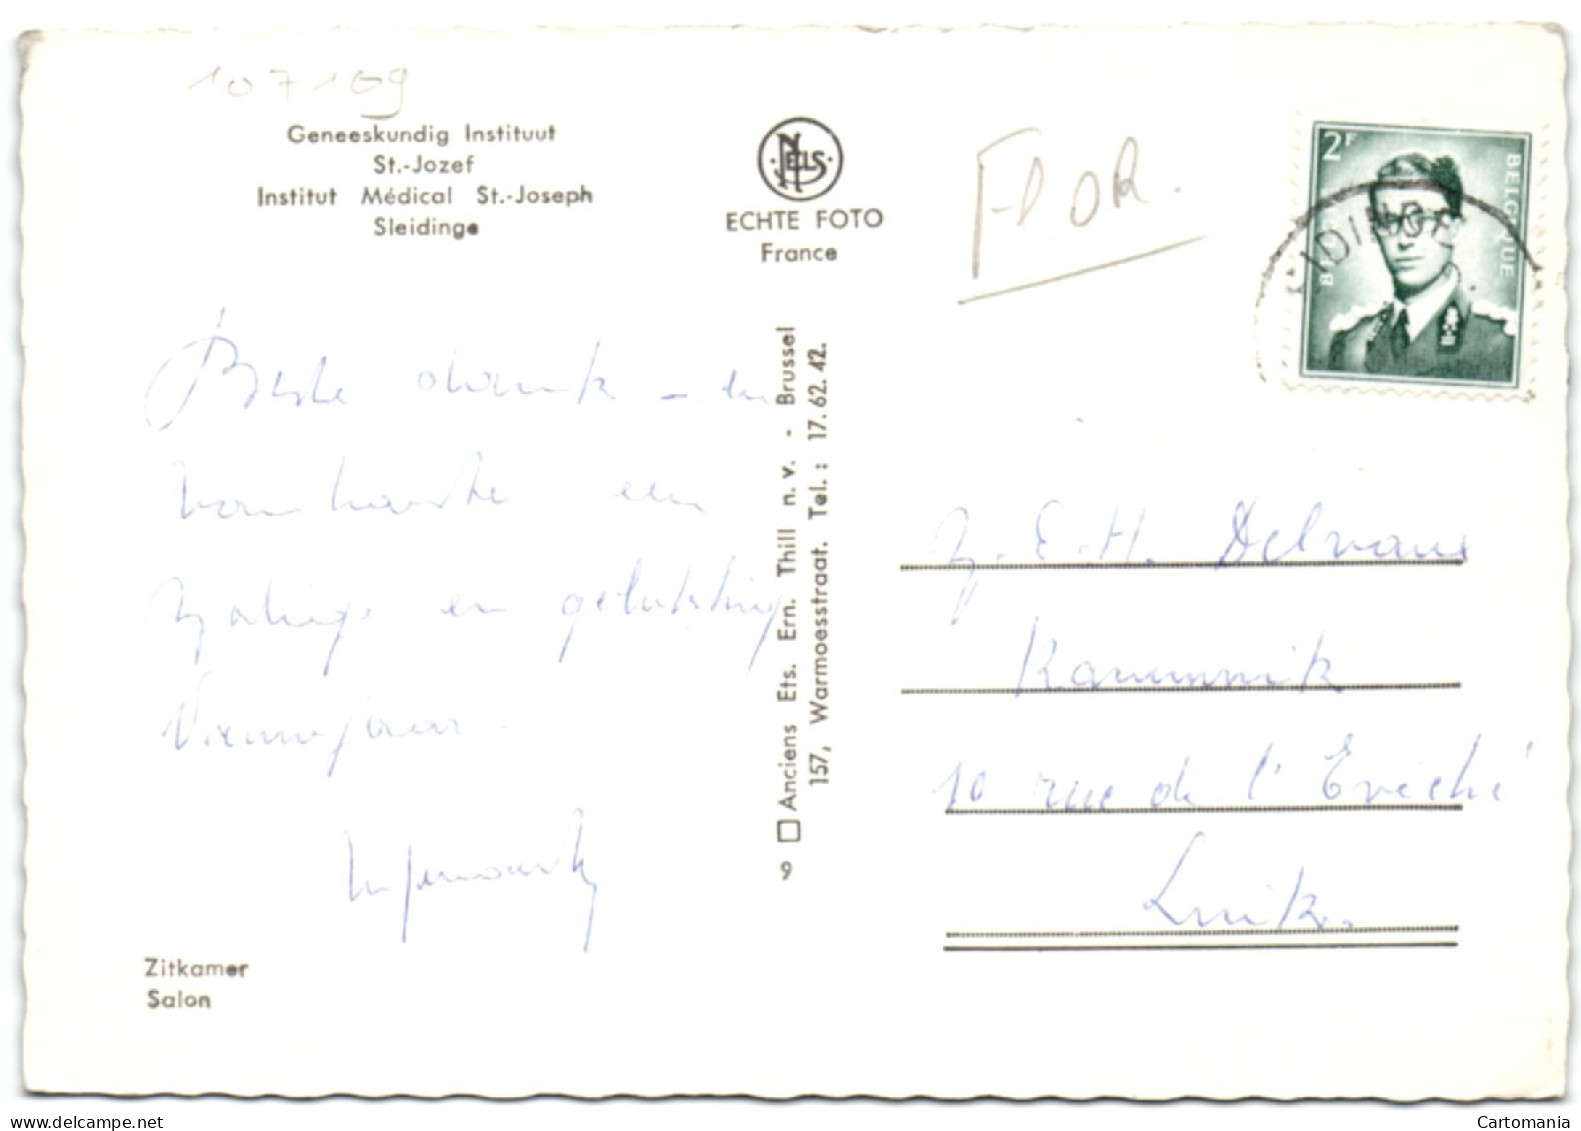 107109
Geneeskundig Instituut
St.-Jozef
Institut Médical St.-Joseph
Sleidinge
NELS
ECHTE FOTO
France
FLOR.
2F
BELGIQUE
Beste dank - en
van harte een
zalig en gelukkig
Nieuwjaar.
Zitkamer
Salon
9 Anciens Ets. Ern. Thill n. v. - Brussel
157, Warmoesstraat. Tel. : 17. 62. 42.
Z. E. H. Delvaux
Kanunnik
10 rue de l'Evêché
Luik.
Cartomania